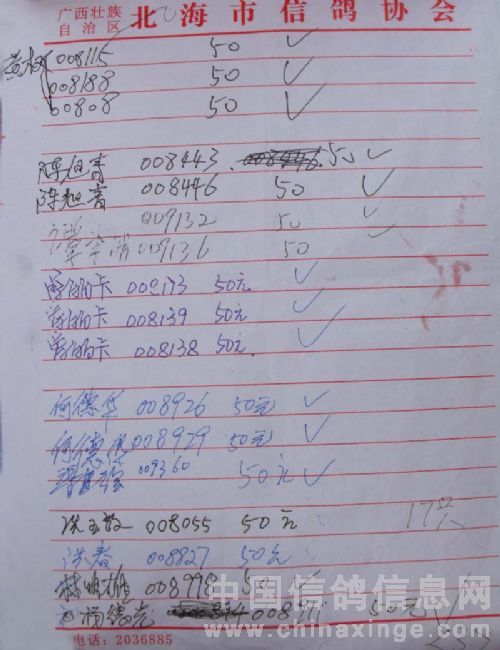 广西壮族
自治区
北海市信鸽协会
黄 008115 50 ✓
008188 50 ✓
00808 50 ✓
陈旭青 008443 50 ✓
陈旭青 008446 50 ✓
009132 50 ✓
009136 50 ✓
曾的卡 50元 ✓
曾的卡 008139 50元 ✓
曾的卡 008138 50元 ✓
何德华 008926 50元 ✓
何德华 008929 50元 ✓
009360 50元 ✓
洪玉 008055 50元 ✓ 17只
洪春 008827 50元 ✓
林明雄 008998 50 ✓
杨德光 50元 ✓
电话：2036885
中国信鸽信息网
www.chinaxinge.com